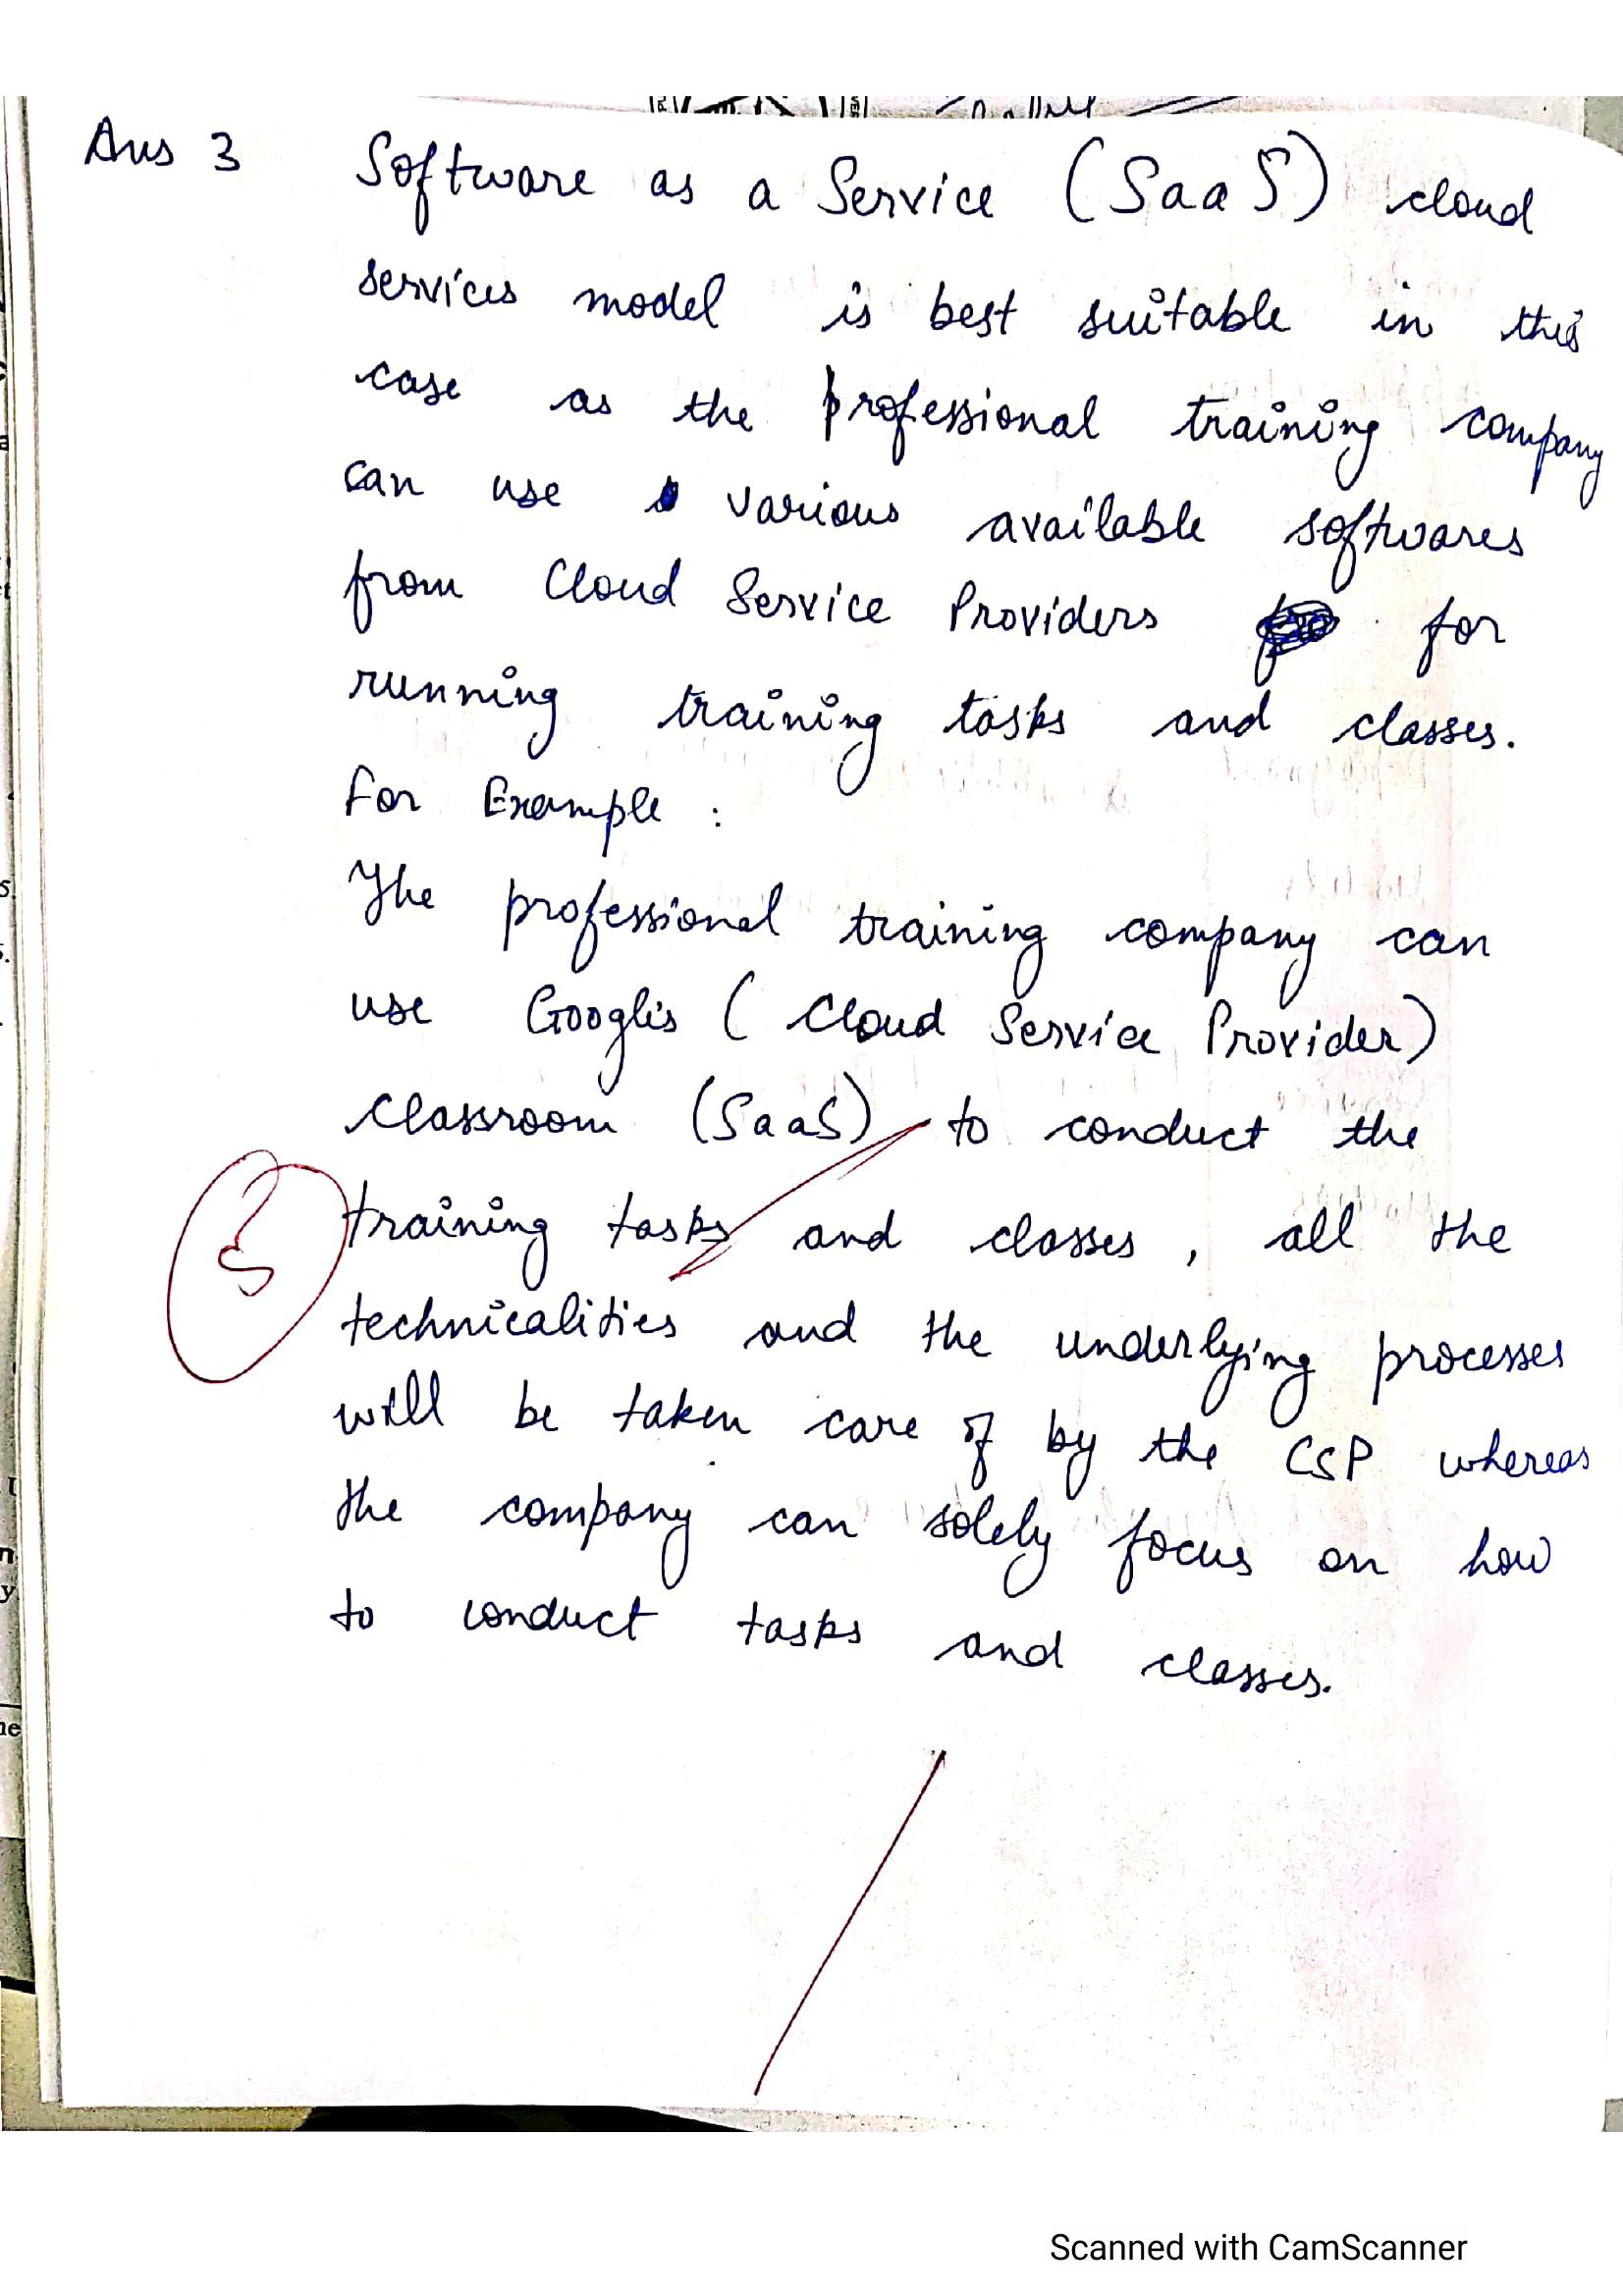 Ans 3
Software as a Service (SaaS) cloud
services model is best suitable in this
case as the professional training company
can use various available softwares
from Cloud Service Providers for
running training tasks and classes.
For Example :
The professional training company can
use Google's (Cloud Service Provider)
classroom (SaaS) to conduct the
training tasks and classes, all the
technicalities and the underlying processes
will be taken care of by the CSP whereas
the company can solely focus on how
to conduct tasks and classes.
Scanned with CamScanner